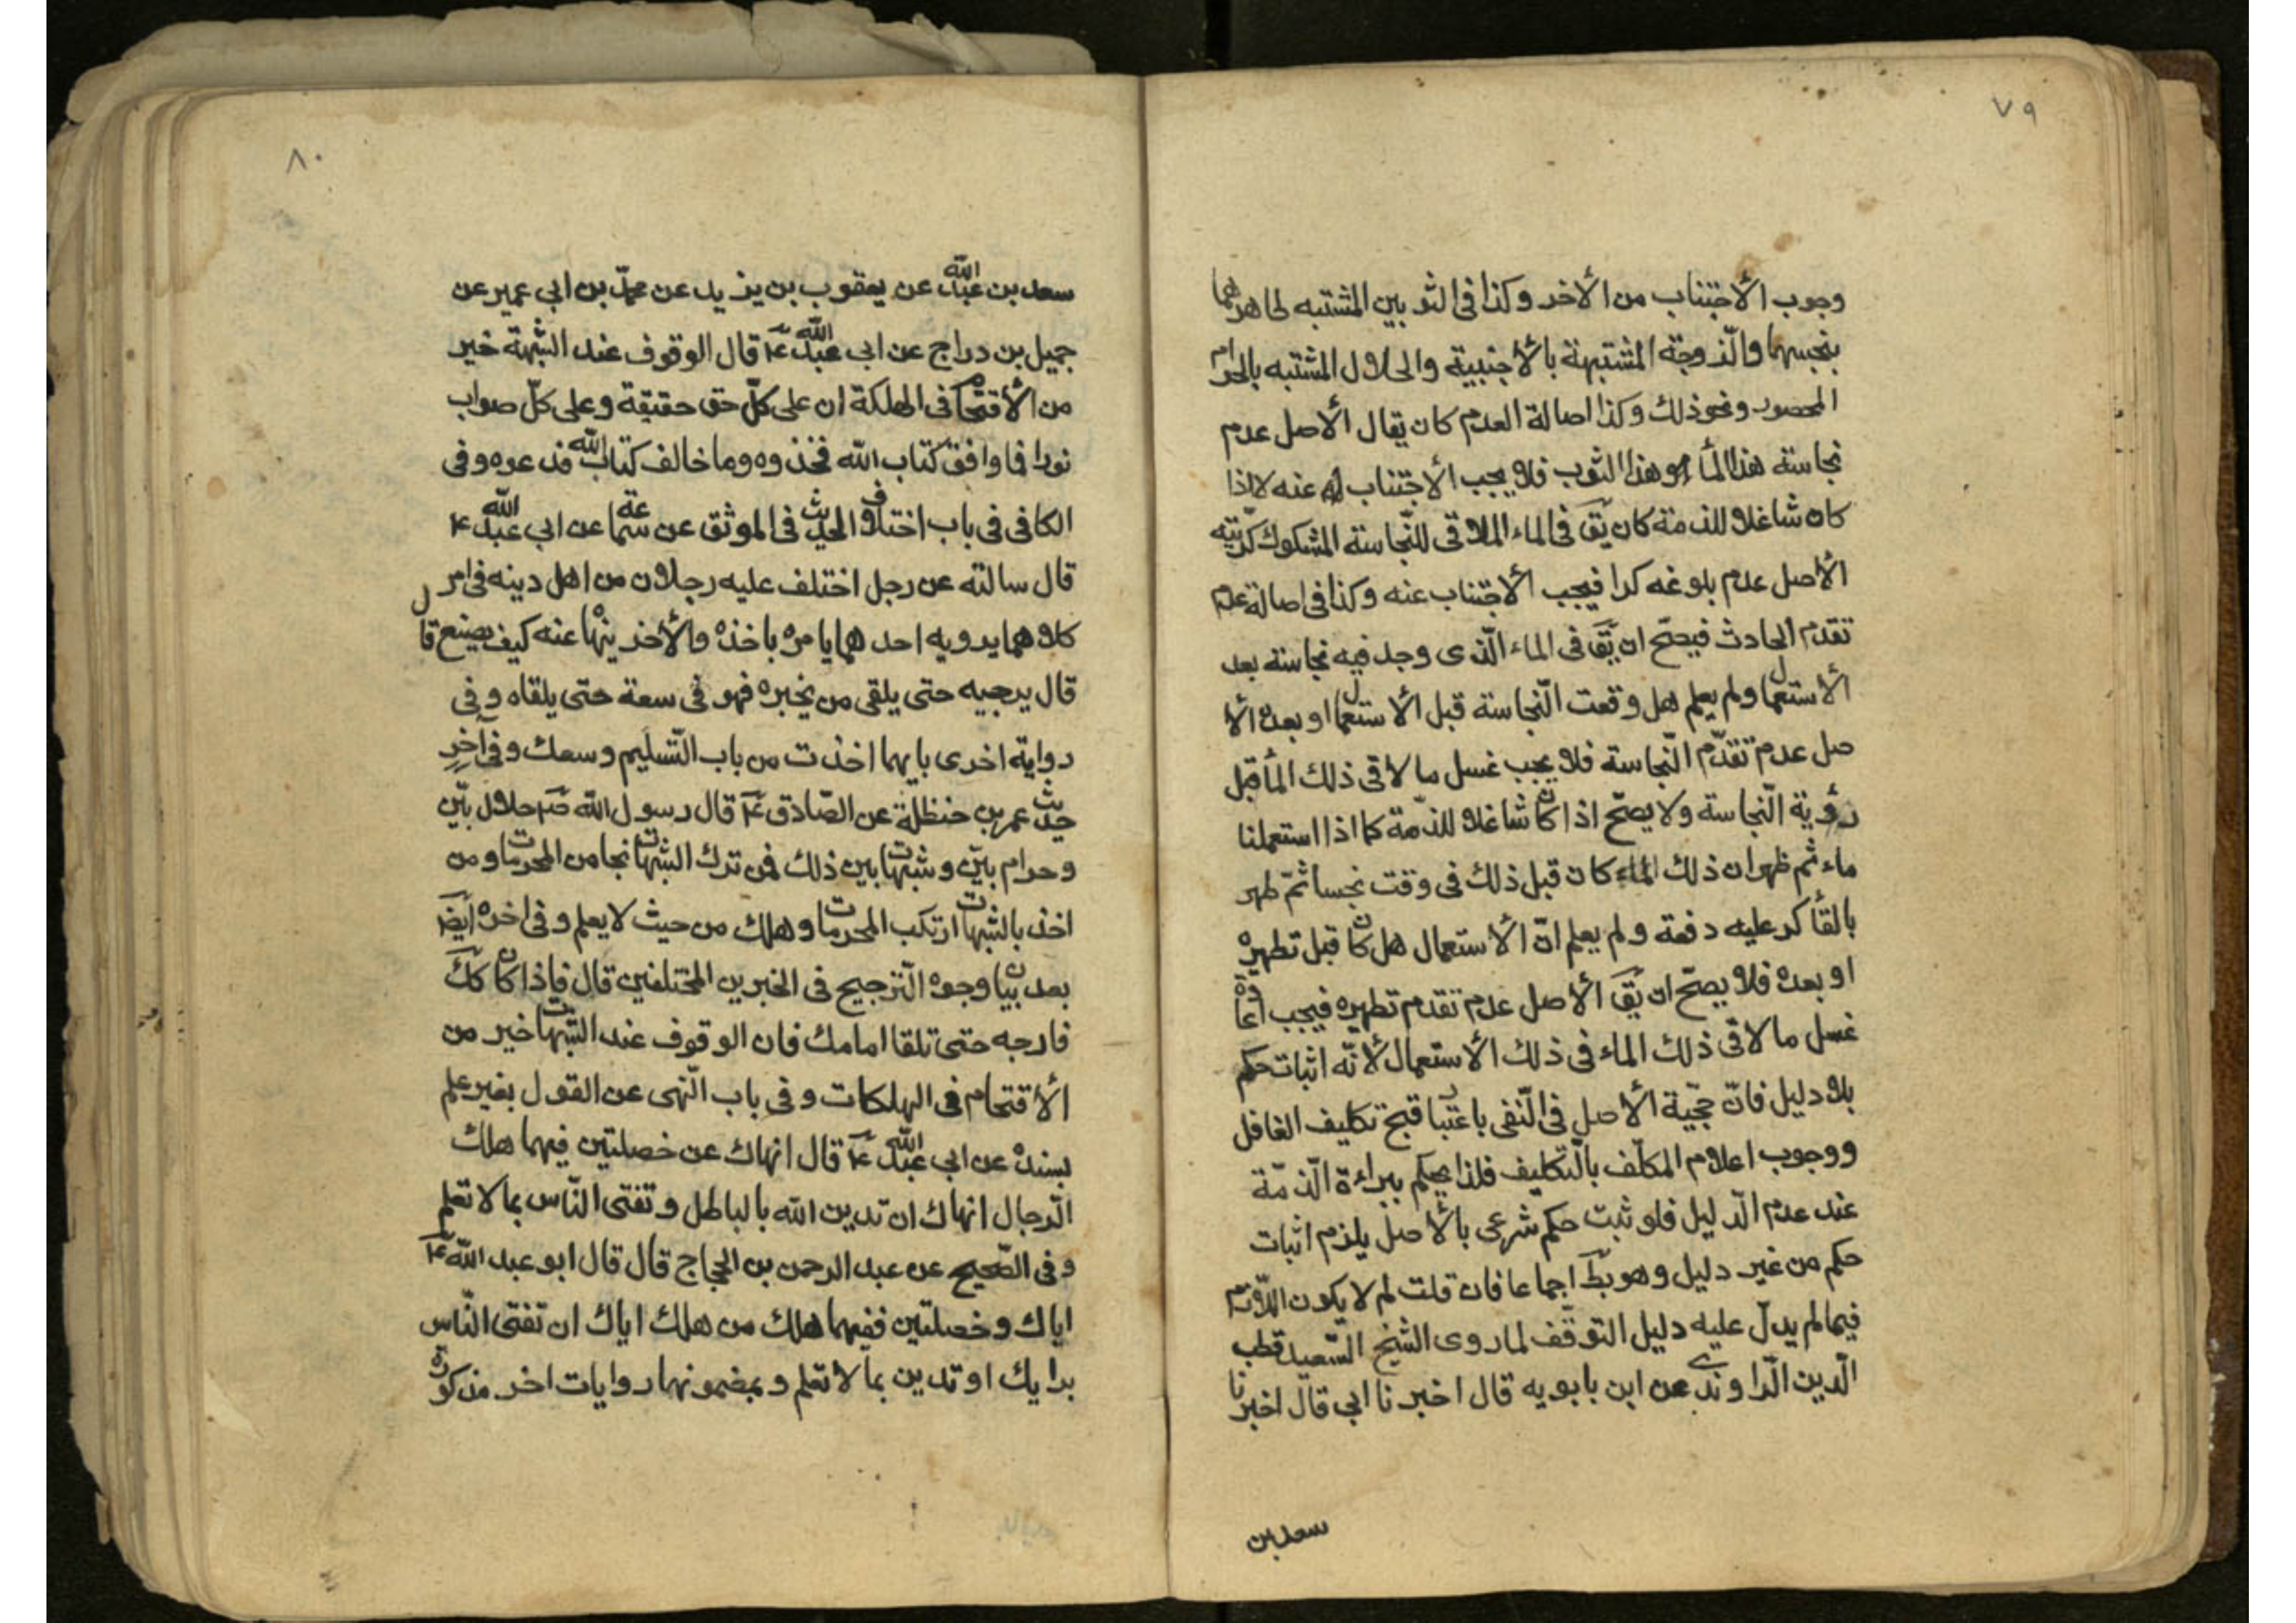 ٧٩
وجوب الأجتناب من الأخر وكذا فى الثوبين المشتبه طاهرهما
بنجسهما والزّوجة المشتبهة بالأجنبية والحلال المشتبه بالحرام
المحصور ونحو ذلك وكذا اصالة العدم كان يقال الأصل عدم
نجاسة هذا المأ او هذا الثوب فلا يجب الأجتناب عنه لا اذا
كان شاغلا للذمة كان يق فى الماء الملاقى للنّجاسة المشكوك كرّيّته
الأصل عدم بلوغه كرا فيجب الأجتناب عنه وكذا فى اصالة عدم
تقدم الحادث فيصحّ ان يّق فى الماء الّذى وجد فيه نجاسة بعد
الأستعمال ولم يعلم هل وقعت النّجاسة قبل الأستعمال او بعده الأ
صل عدم تقدّم النّجاسة فلا يجب غسل ما لاقى ذلك المأ قبل
رؤية النّجاسة ولا يصحّ اذا كان شاغلا للذمّة كما اذا استعملنا
ماء ثم ظهر ان ذلك الماء كان قبل ذلك فى وقت نجسا ثمّ طهر
بالقأ كر عليه دفعة ولم يعلم انّ الأستعمال هل كان قبل تطهيره
او بعده فلا يصحّ ان يق الأصل عدم تقدم تطهيره فيجب اعادة
غسل ما لاقى ذلك الماء فى ذلك الأستعمال لأنّه اثبات حكم
بلا دليل فانّ حجّية الأصل فى النّفى باعتبار قبح تكليف الغافل
ووجوب اعلام المكلّف بالتّكليف فلذا يحكم ببراءة الذّمّة
عند عدم الدّليل فلو ثبت حكم شرعى بالأصل يلزم اثبات
حكم من غير دليل وهو بط اجماعا فان قلت لم لا يكون اللّازم
فيما لم يدلّ عليه دليل التوقّف لما روى الشيخ السّعيد قطب
الّدين الّراوندى عن ابن بابويه قال اخبرنا ابى قال اخبرنا
سعد بن
٨٠
سعد بن عبد الله عن يعقوب بن يزيد عن محمّد بن ابى عمير عن
جميل بن دراج عن ابى عبد الله ع قال الوقوف عند الشّبهة خير
من الأقتحام فى الهلكة ان على كلّ حق حقيقة وعلى كلّ صواب
نورا فما وافق كتاب الله فخذوه وما خالف كتاب الله فدعوه وفى
الكافى فى باب اختلاف الحديث فى الموثق عن سماعة عن ابى عبد الله ع
قال سالته عن رجل اختلف عليه رجلان من اهل دينه فى امر
كلاهما يرويه احدهما يامره باخذه والأخر ينهاه عنه كيف يصنع قال
قال يرجيه حتى يلقى من يخبره فهو فى سعة حتى يلقاه وفى
رواية اخرى بايهما اخذت من باب التّسليم وسعك وفى آخر
حديث عمر بن حنظلة عن الصّادق ع قال رسول الله ص حلال بيّن
وحرام بيّن وشبهات بين ذلك فمن ترك الشبهات نجا من المحرمات ومن
اخذ بالشبهات ارتكب المحرمات وهلك من حيث لا يعلم وفى اخره ايضا
بعد بيان وجوه التّرجيح فى الخبرين المختلفين قال فاذا كان كك
فارجه حتى تلقا امامك فان الوقوف عند الشّبهات خير من
الأقتحام فى الهلكات وفى باب النّهى عن القول بغير علم
بسنده عن ابى عبد الله ع قال انهاك عن خصلتين فيهما هلك
الّرجال انهاك ان تدين الله بالباطل وتفتى النّاس بما لا تعلم
وفى الصّحيح عن عبد الرحمن بن الحجاج قال قال ابو عبد الله ع
اياك وخصلتين ففيهما هلك من هلك اياك ان تفتى النّاس
برايك او تدين بما لا تعلم وبمضمونها روايات اخر مذكورة